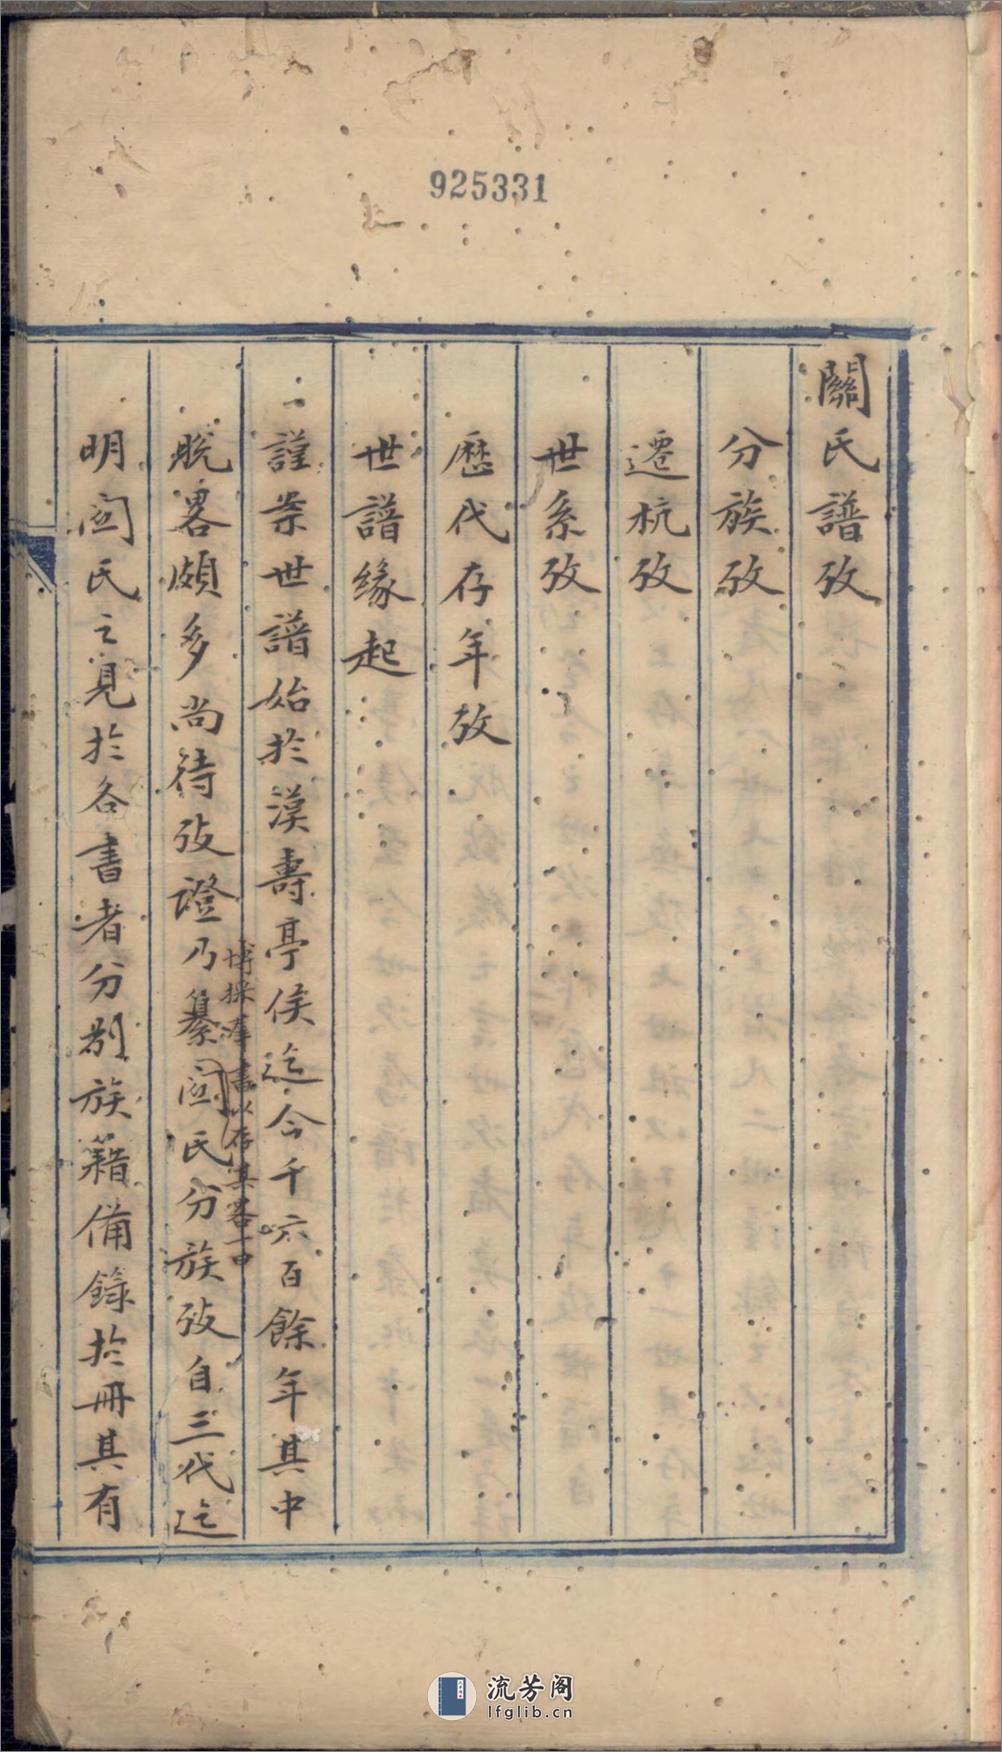 925331
關氏譜攷
分族攷
遷杭攷
世系攷
歷代存年攷
世譜緣起
一謹案世譜始於漢壽亭侯迄今千六百餘年其中
博採羣書以存其畧一中
脫畧頗多尚待攷證乃纂関氏分族攷自三代迄
明関氏之見於各書者分别族籍備錄於冊其有
流芳阁
lfglib.cn